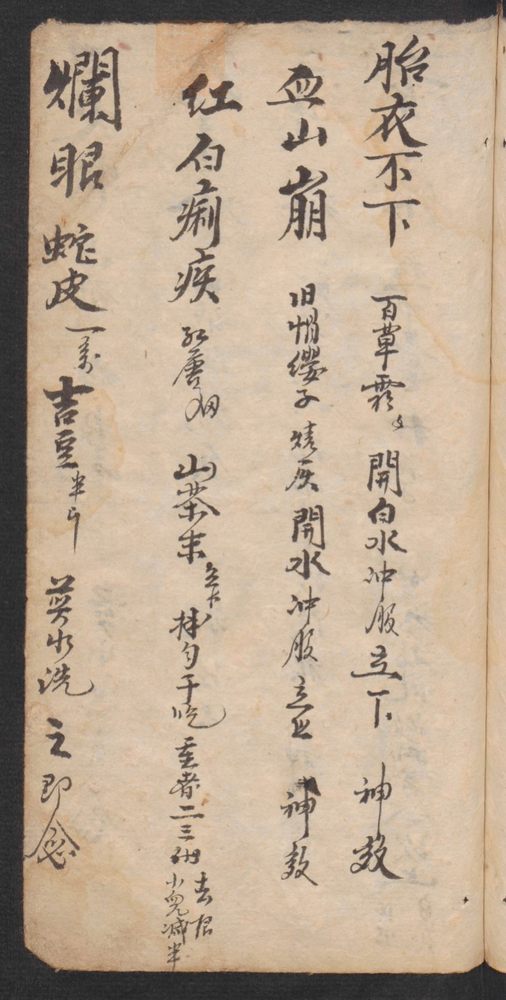 胎衣不下 百草霜 開白水冲服立下 神效
血山崩 旧帽纓子 燒灰 開水冲服 立止 神效
红白痢疾 红唐 山茶末 拌匀干吃 重者二三 去根 小児减半
爛眼 蛇皮一 吉豆半斤 水洗之即愈